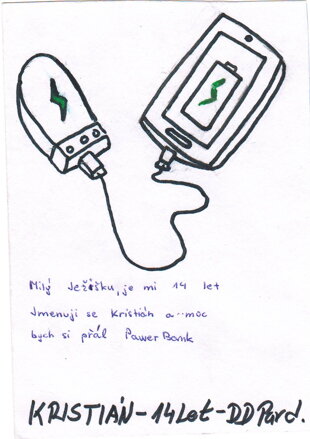 Milý Ježíšku, je mi 14 let
Jmenuji se Kristián a moc
bych si přál PawerBank
KRISTIÁN-14Let-DDPard.